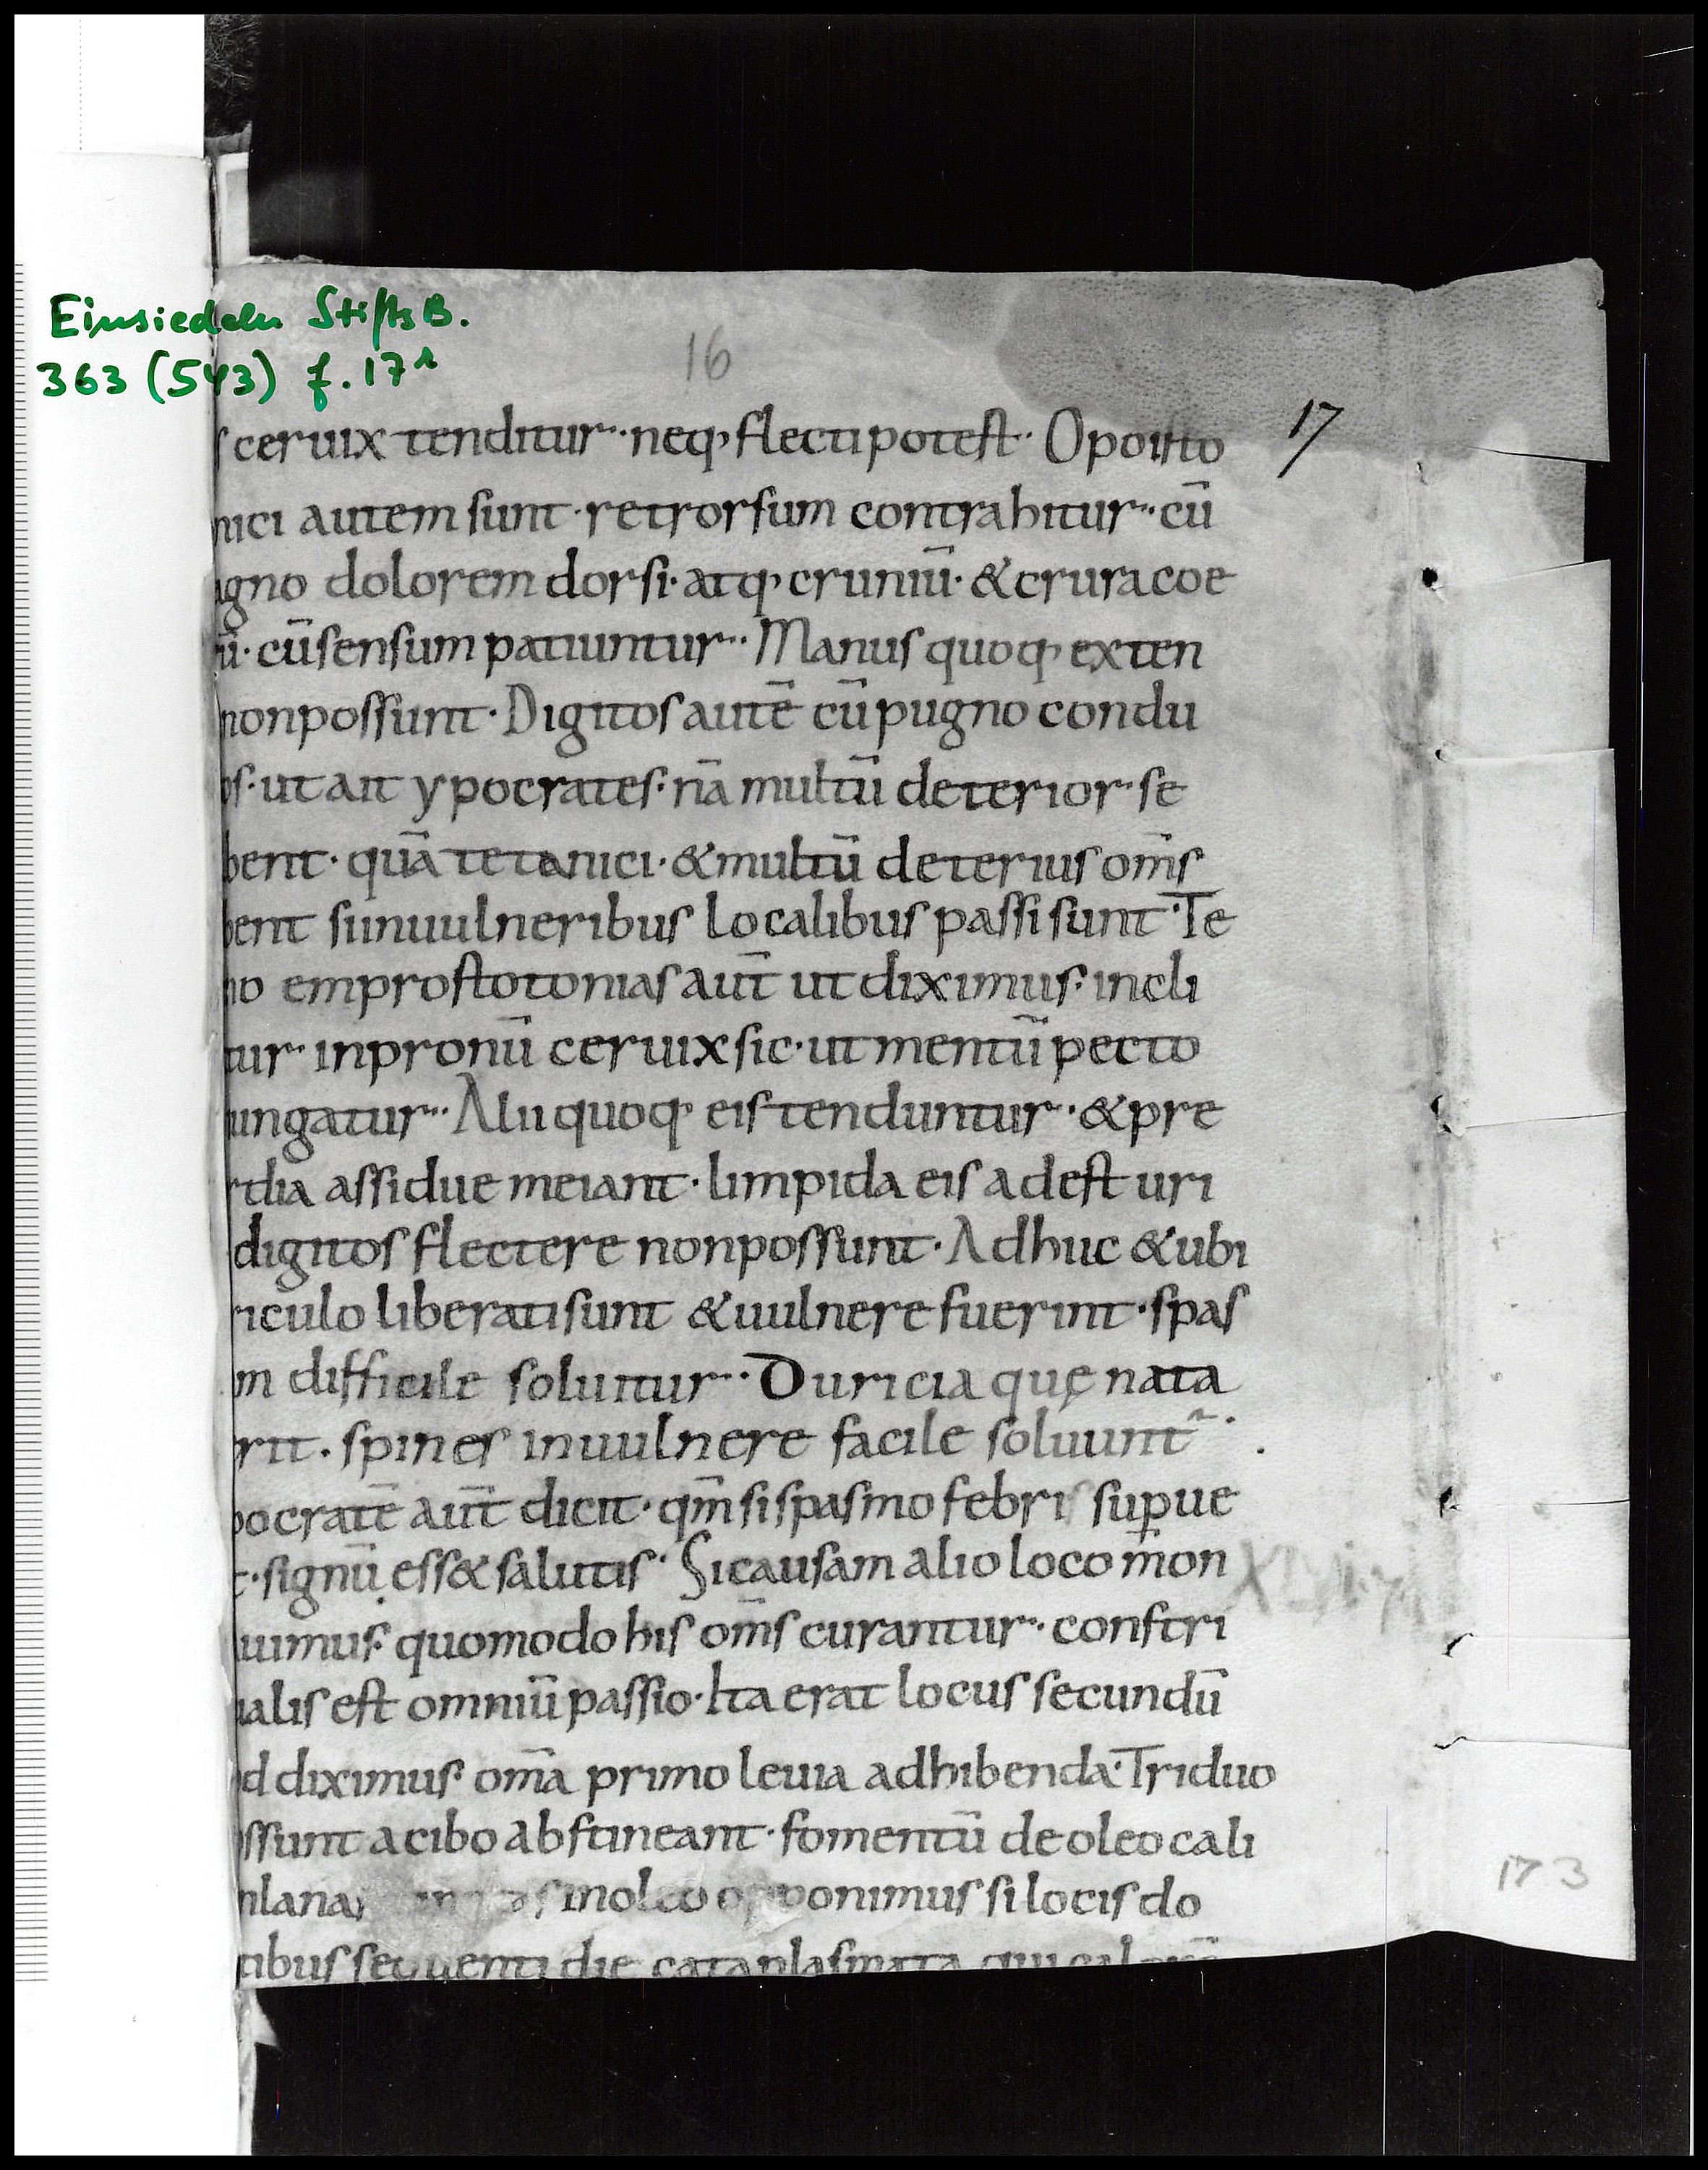 Einsiedeln StiftsB.
363 (543) f. 17r
16
17
s ceruix tenditur· neq; flecti potest· Opoitto
nici autem sunt· retrorsum contrahitur· cū
gno dolorem dorsi· atq; cruniū· & crura coe
ū· cū sensum patiuntur· Manus quoq; exten
non possunt· Digitos autē cū pugno condu
os· ut ait ypocrates· nā multū deterior se
bent· quā tetanici· & multū deterius om̄s
bent si in uulneribus localibus passi sunt· Te
no emprostotonias aut̄ ut diximus· incli
tur inpronū ceruix sic· ut mentū pecto
ungatur· Alii quoq; eis tenduntur· & pre
rdia assidue meiant· limpida eis adest uri
digitos flectere non possunt· Adhuc & ubi
riculo liberati sunt & uulnere fuerint· spas
m difficile soluitur· Duricia quę nata
rit· spines inuulnere facile soluunt᷑·
pocratē aut̄ dicit· qm̄ si spasmo febris supue
t· signū ess& salutis· Si causam alio loco m̄on
uimus· quomodo his om̄s curantur· constri
ialis est omniū passio· Ita erat locus secundū
d diximus· om̄a primo leuia adhibenda· Triduo
ssunt a cibo abstineant· fomentū de oleo cali
nlana in oleo opponimus si locis do
tibus sequenti die cataplasmata qui
173